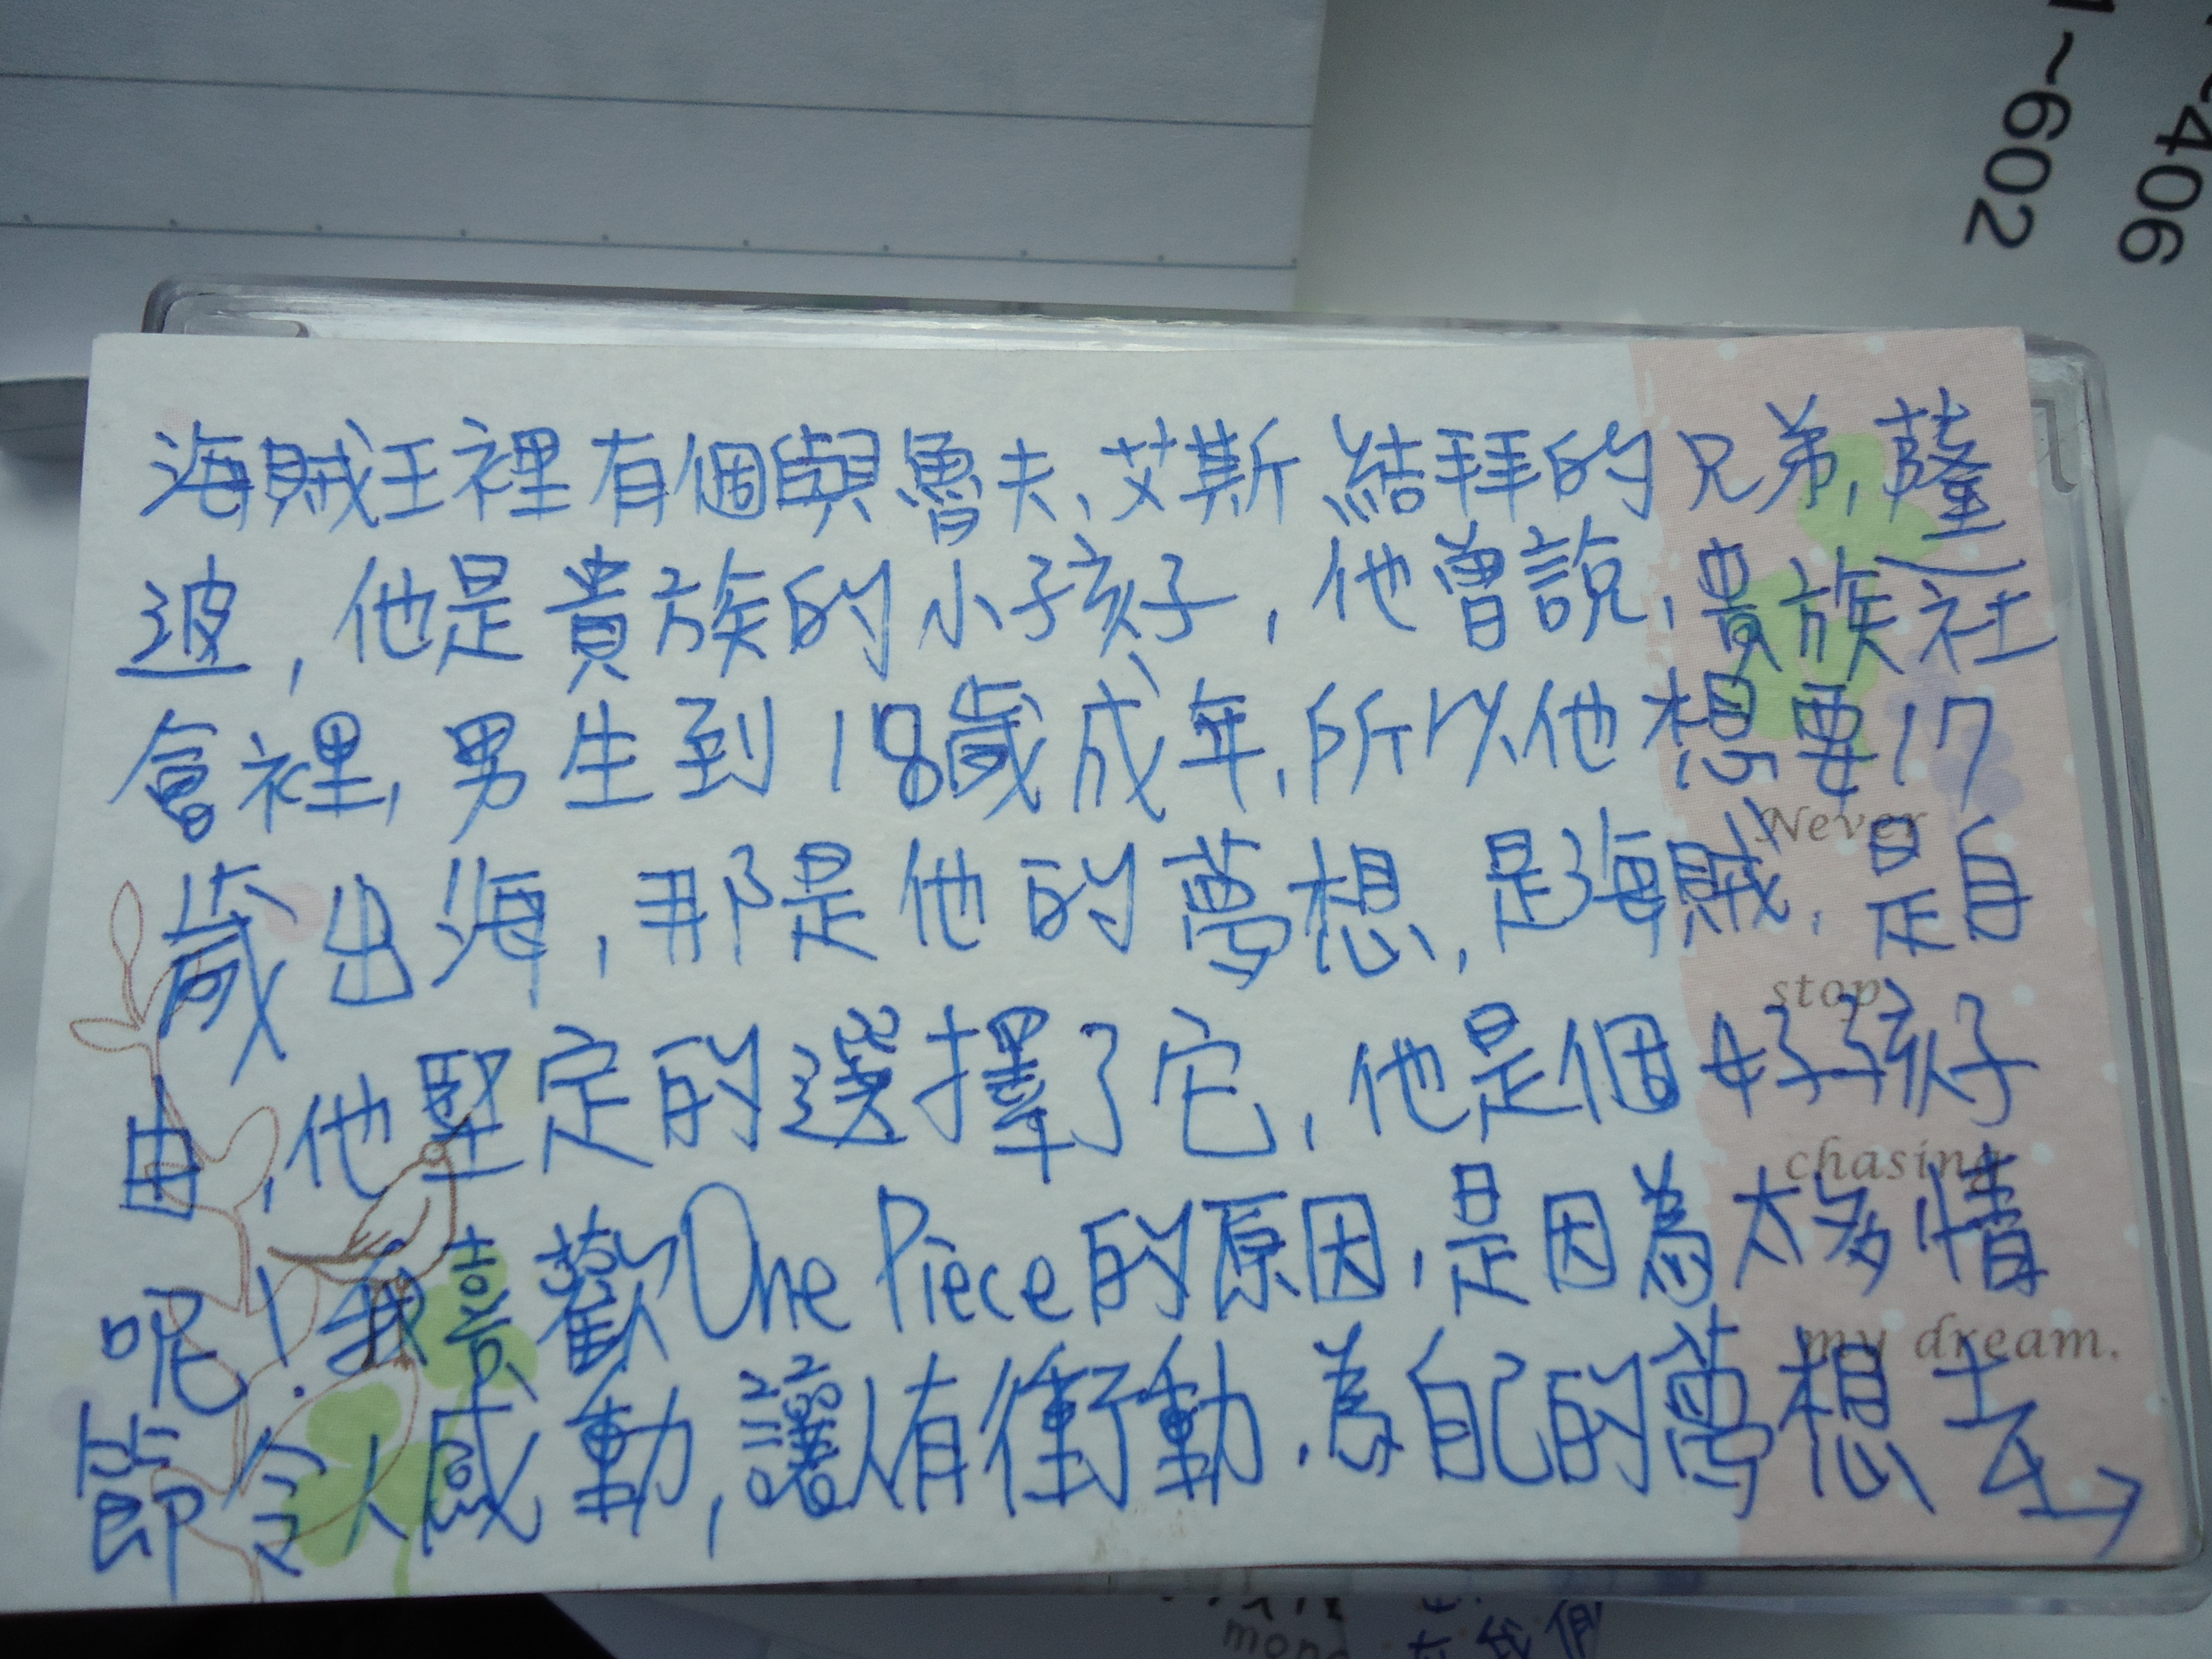 ~406
1~602
海賊王裡有個與魯夫、艾斯結拜的兄弟,薩
波,他是貴族的小孩子,他曾說,貴族社
會裡,男生到18歲成年,所以他想要17
歲出海,那是他的夢想,是海賊,是自
由,他堅定的選擇了它,他是個好孩子
呢!我喜歡One Piece的原因,是因為太多情
節令人感動,讓人有衝動,為自己的夢想去→
Never
stop
chasing
my dream.
在我們